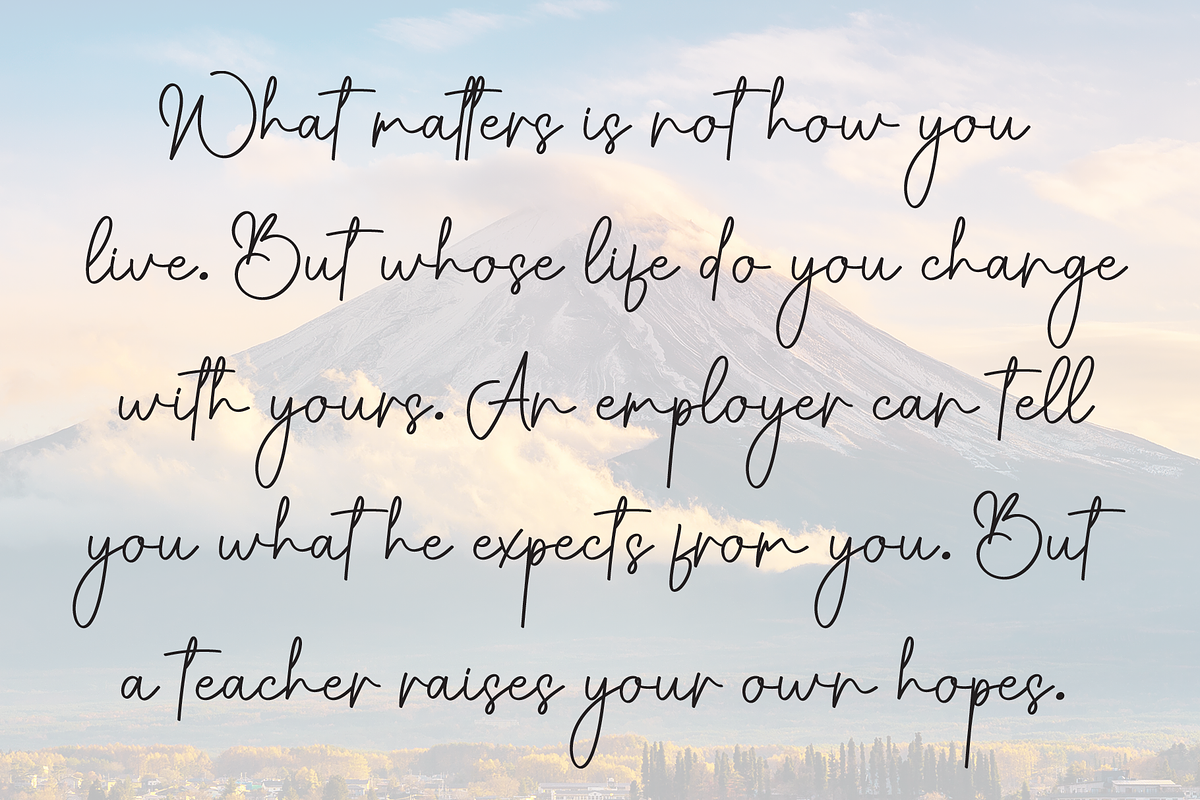 What matters is not how you
live. But whose life do you change
with yours. An employer can tell
you what he expects from you. But
a teacher raises your own hopes.